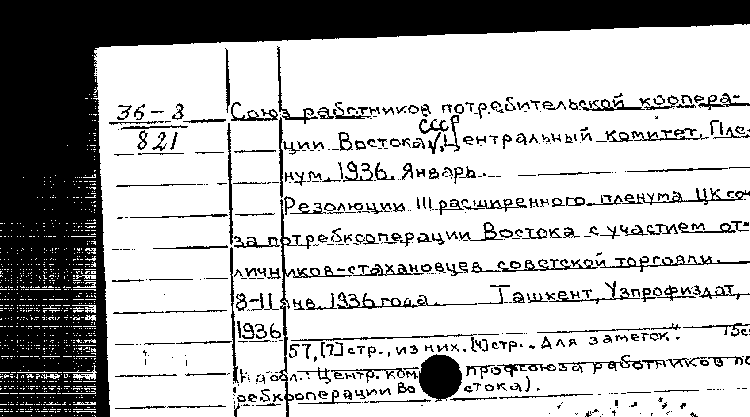 36-3 Союз работников потребительской коопера-
821
СССР
ции Востока, Центральный комитет. Пле-
нум. 1936. Январь.
Резолюции III расширенного пленума ЦК сою-
за потребкооперации Востока с участием от-
личников-стахановцев советской торговли.
8-11 янв. 1936 года. Ташкент, Узпрофиздат,
1936
57, [7] стр., из них. [4] стр. „Для заметок".
(На обл.: Центр. ком профсоюза работников по
ребкооперации Во стока).